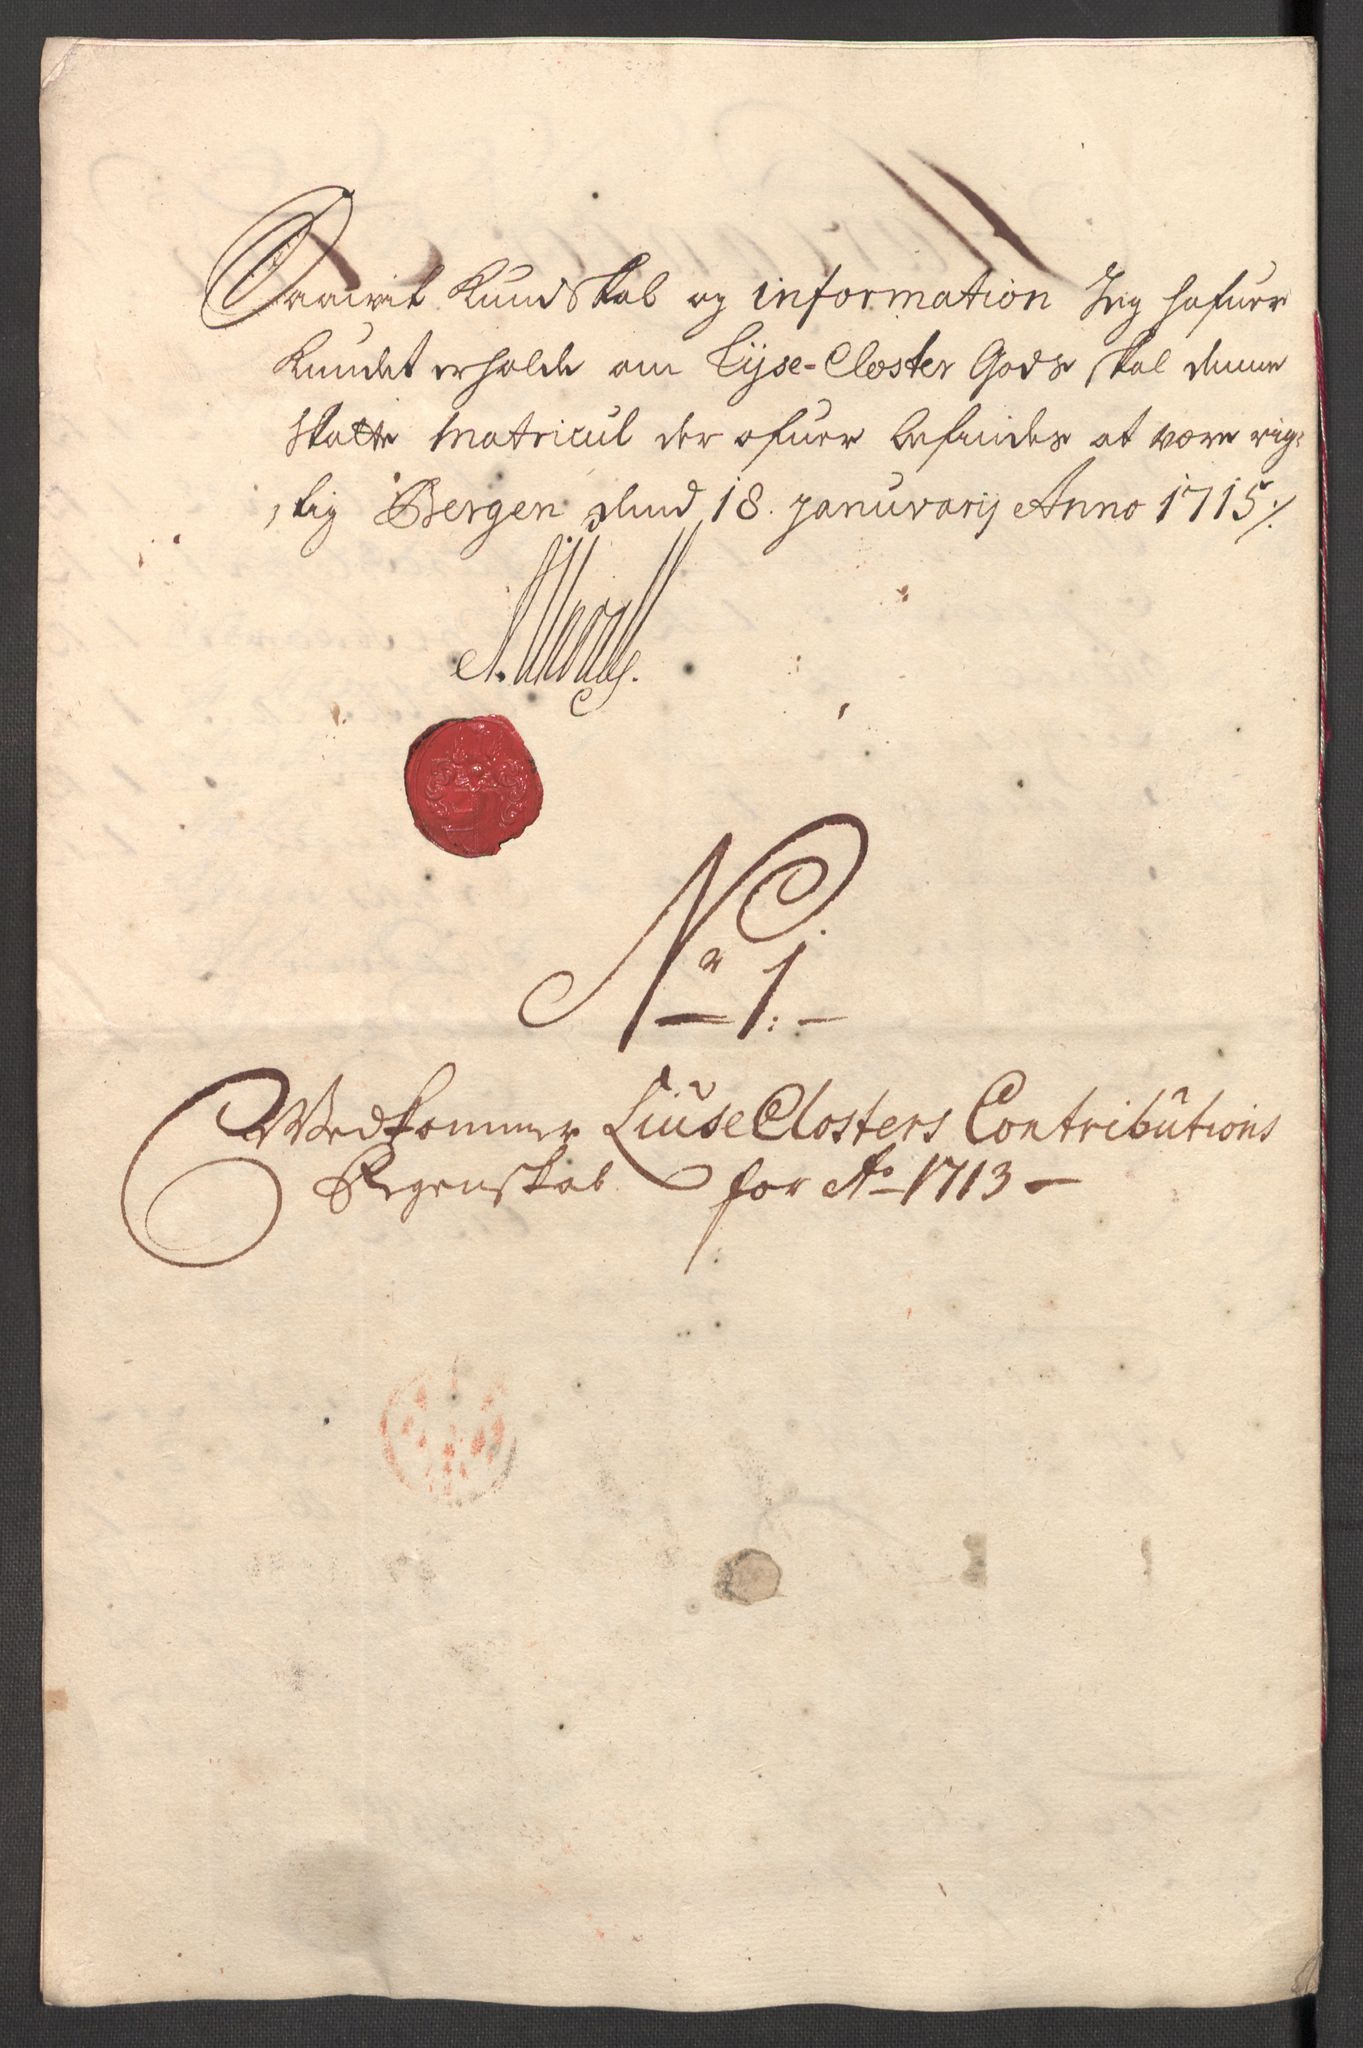 Saavit Kundskab og information Jeg hafuer
Kundet erholde om Lyse-Closter Gods skal denne
Skatte Matricul der ofuer befindes at være rig-
,tig Bergen dend 18. januvarij Anno 1715 ./.
No 1:
Vedkommer LiuseClosters Contributions
Regenskab for Ao 1713